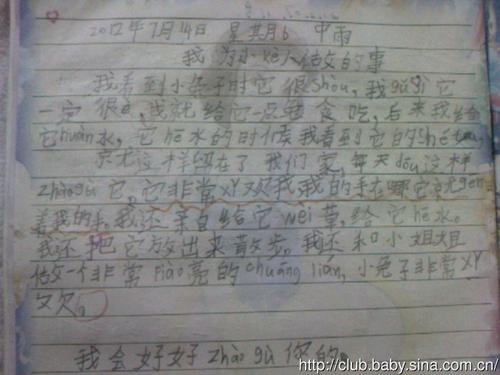 2012年7月14日 星其月6 中雨
我为小kè人估文的事
我看到小兔子时它很shòu,我gūjì它
一定很,我就给它一点鱼食吃,后来我给
它huàn水,它hē水的时候我看到它的shé
京尤这样留在了我们家,每天dōu这样
zhàogù它,它非常xǐ又欠我,我的手在哪它京尤gēn
着我的手。我还亲自给它wèi草,给它hē水。
我还把它放出来散步。我还和小姐姐
估文一个非常piào亮的chuāng lián,小兔子非常xǐ
又欠。
我会好好zhào gù你的。
http://club.baby.sina.com.cn/